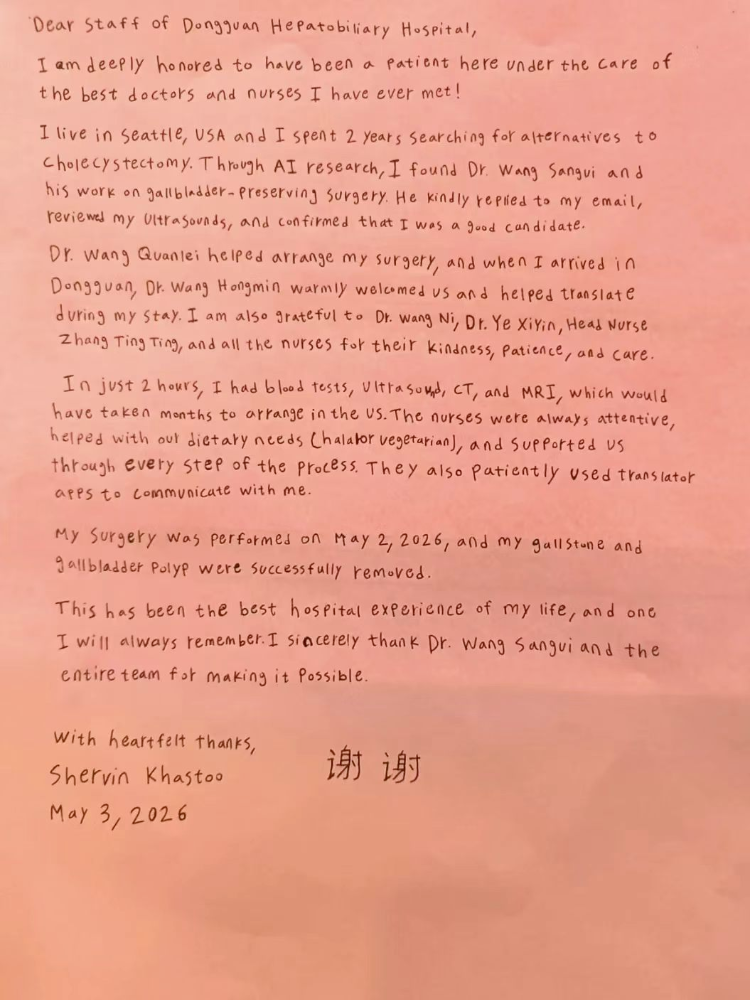 Dear Staff of Dongguan Hepatobiliary Hospital,
I am deeply honored to have been a patient here under the care of
the best doctors and nurses I have ever met!
I live in Seattle, USA and I spent 2 years searching for alternatives to
cholecystectomy. Through AI research, I found Dr. Wang Sangui and
his work on gallbladder-preserving surgery. He kindly replied to my email,
reviewed my ultrasounds, and confirmed that I was a good candidate.
Dr. Wang Quanlei helped arrange my surgery, and when I arrived in
Dongguan, Dr. Wang Hongmin warmly welcomed us and helped translate
during my stay. I am also grateful to Dr. Wang Ni, Dr. Ye XiYin, Head Nurse
Zhang Ting Ting, and all the nurses for their kindness, patience, and care.
In just 2 hours, I had blood tests, ultrasound, CT, and MRI, which would
have taken months to arrange in the US. The nurses were always attentive,
helped with our dietary needs (halal or vegetarian), and supported us
through every step of the process. They also patiently used translator
apps to communicate with me.
My surgery was performed on May 2, 2026, and my gallstone and
gallbladder polyp were successfully removed.
This has been the best hospital experience of my life, and one
I will always remember. I sincerely thank Dr. Wang Sangui and the
entire team for making it possible.
With heartfelt thanks,
Shervin Khastoo 谢谢
May 3, 2026